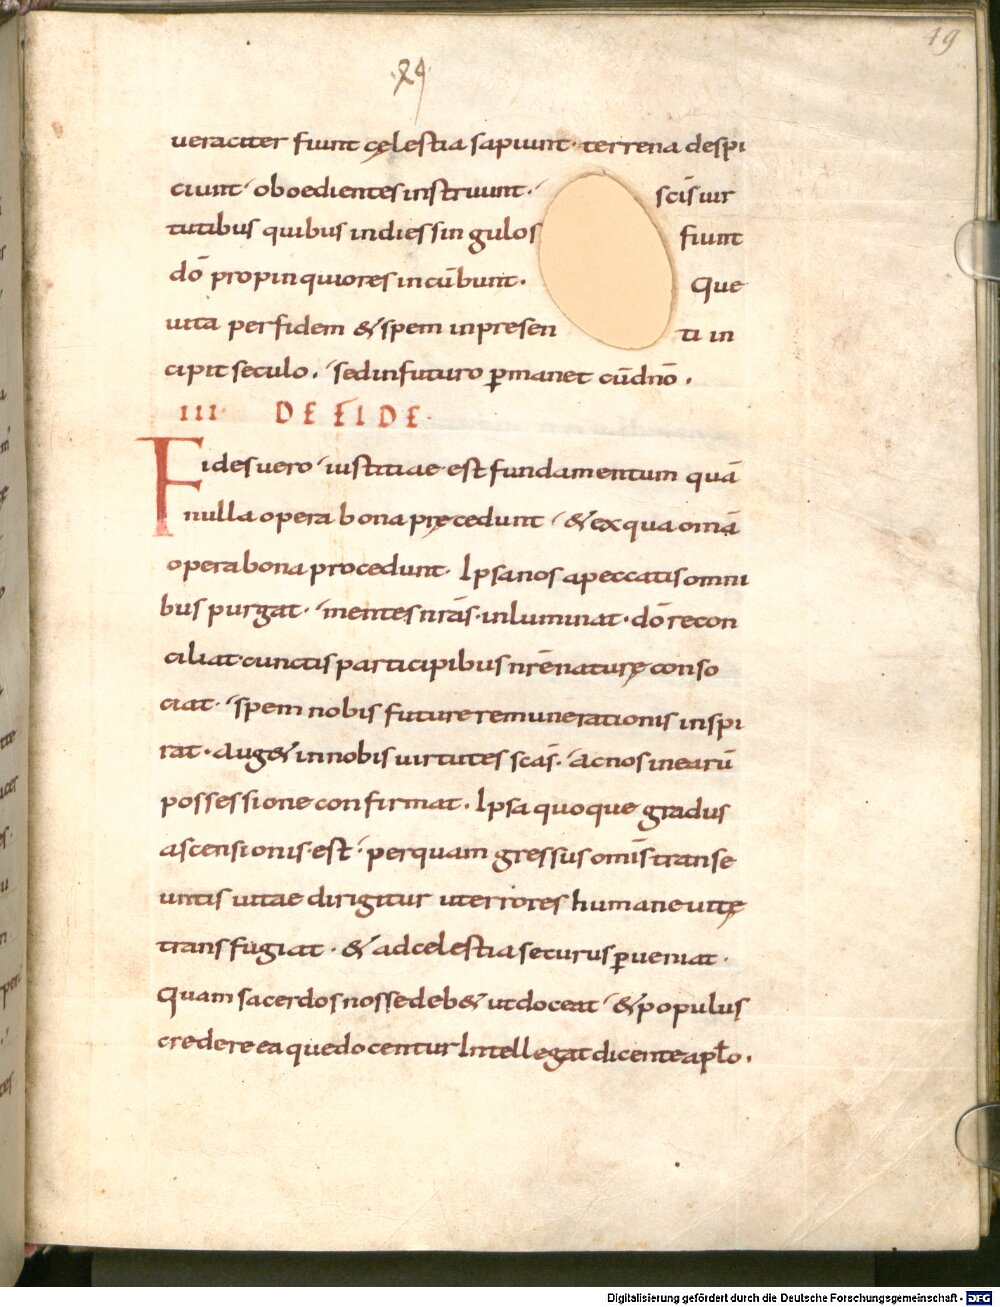 19
29
ueraciter fiunt cęlestia sapiunt· terrena despi
ciunt· oboedientes instruunt· scīs uir
tutibus quibus in dies singulos fiunt
dō propinquiores incūbunt· Que
uita per fidem & spem in presen ti in
cipit seculo, sed in futuro ꝑmanet cū dnō.
III· DE FIDE·
Fides uero iustitiae est fundamentum quā
nulla opera bona pręcedunt & ex qua omīa
opera bona procedunt· Ipsa nos a peccatis omni
bus purgat· mentes nrās· inluminat· dō recon
ciliat· cunctis participibus nrē naturę conso
ciat· spem nobis future remunerationis inspi
rat· aug& in nobis uirtutes scās· ac nos in earū
possessione confirmat· Ipsa quoque gradus
ascensionis· est· per quam gressus omīs transe
untis uitae dirigitur ut errores humane uitę
transfugiat· & ad celestia securus ꝑueniat·
Quam sacerdos nosse deb& ut doceat & populus
credere ea que docentur Intellegat dicente apło.
Digitalisierung gefördert durch die Deutsche Forschungsgemeinschaft - DFG